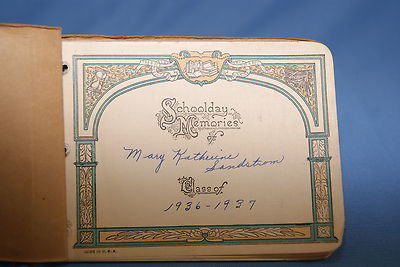 Schoolday
Memories
of
Mary Katherine
Sandstrom
Class of
1936-1937
MADE IN U.S.A.